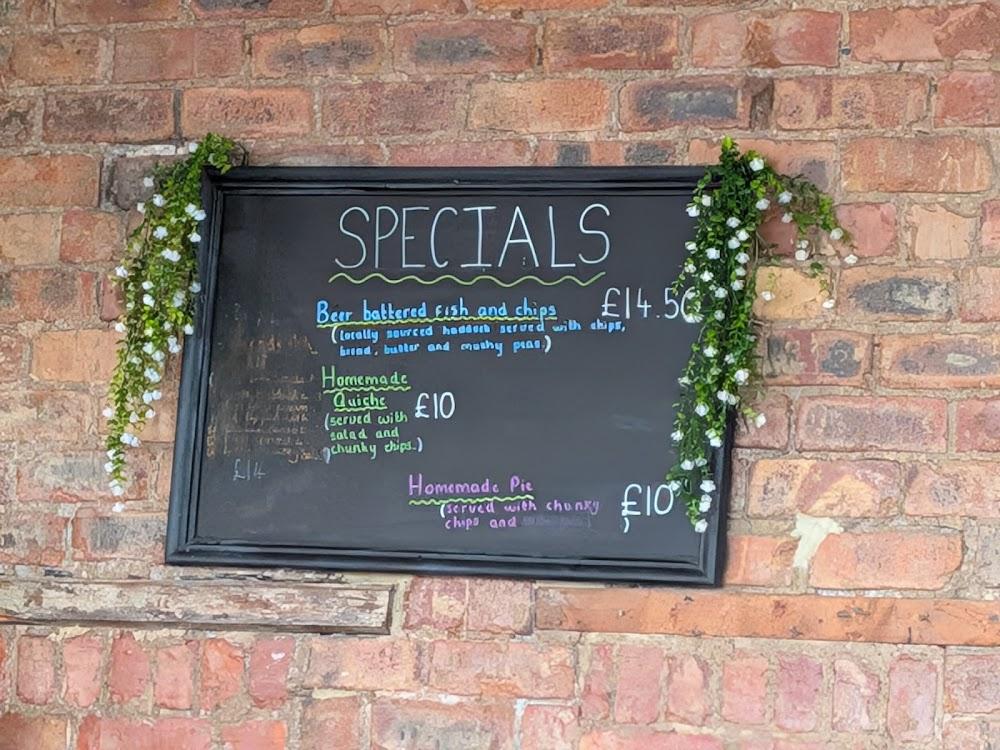 SPECIALS
Beer battered fish and chips £14.50
(locally sourced haddock served with chips,
bread, butter and mushy peas.)
Homemade
Quiche £10
(served with
salad and
chunky chips.)
£14
Homemade Pie £10
(served with chunky
chips and